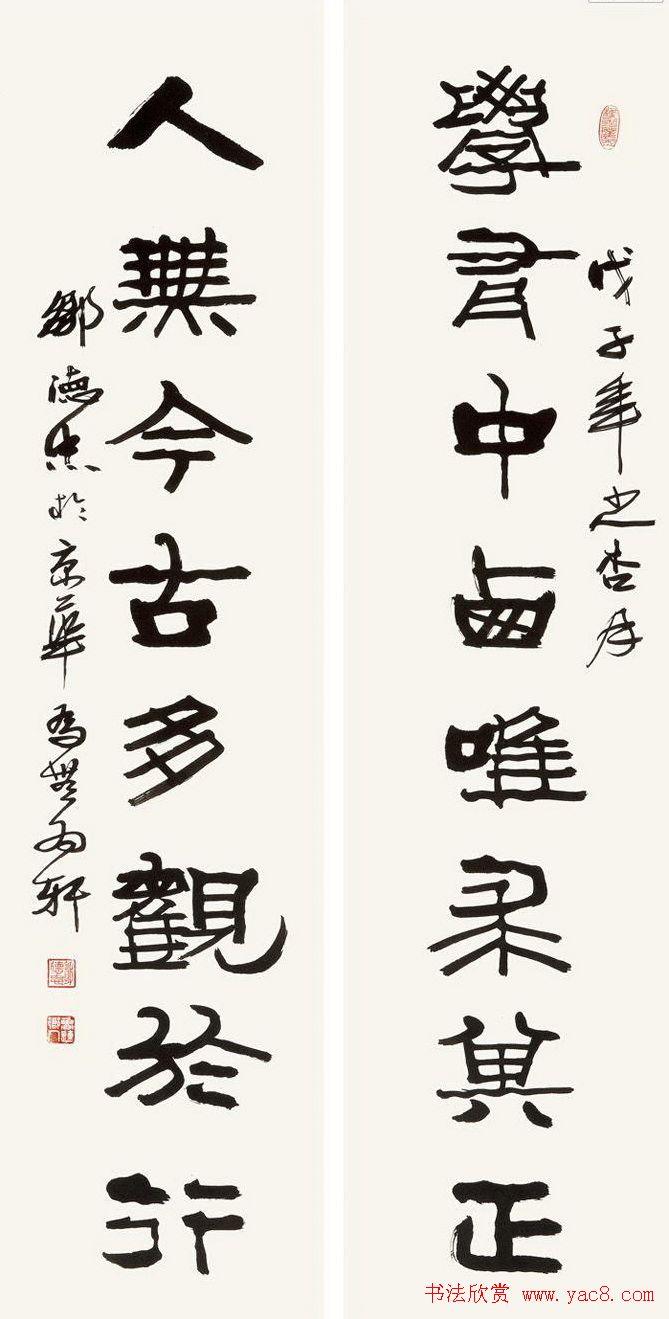 戊子年之杏月
學有中西唯求其正
人無今古多觀於行
鄒德忠於京華為無為軒
书法欣赏 www.yac8.com